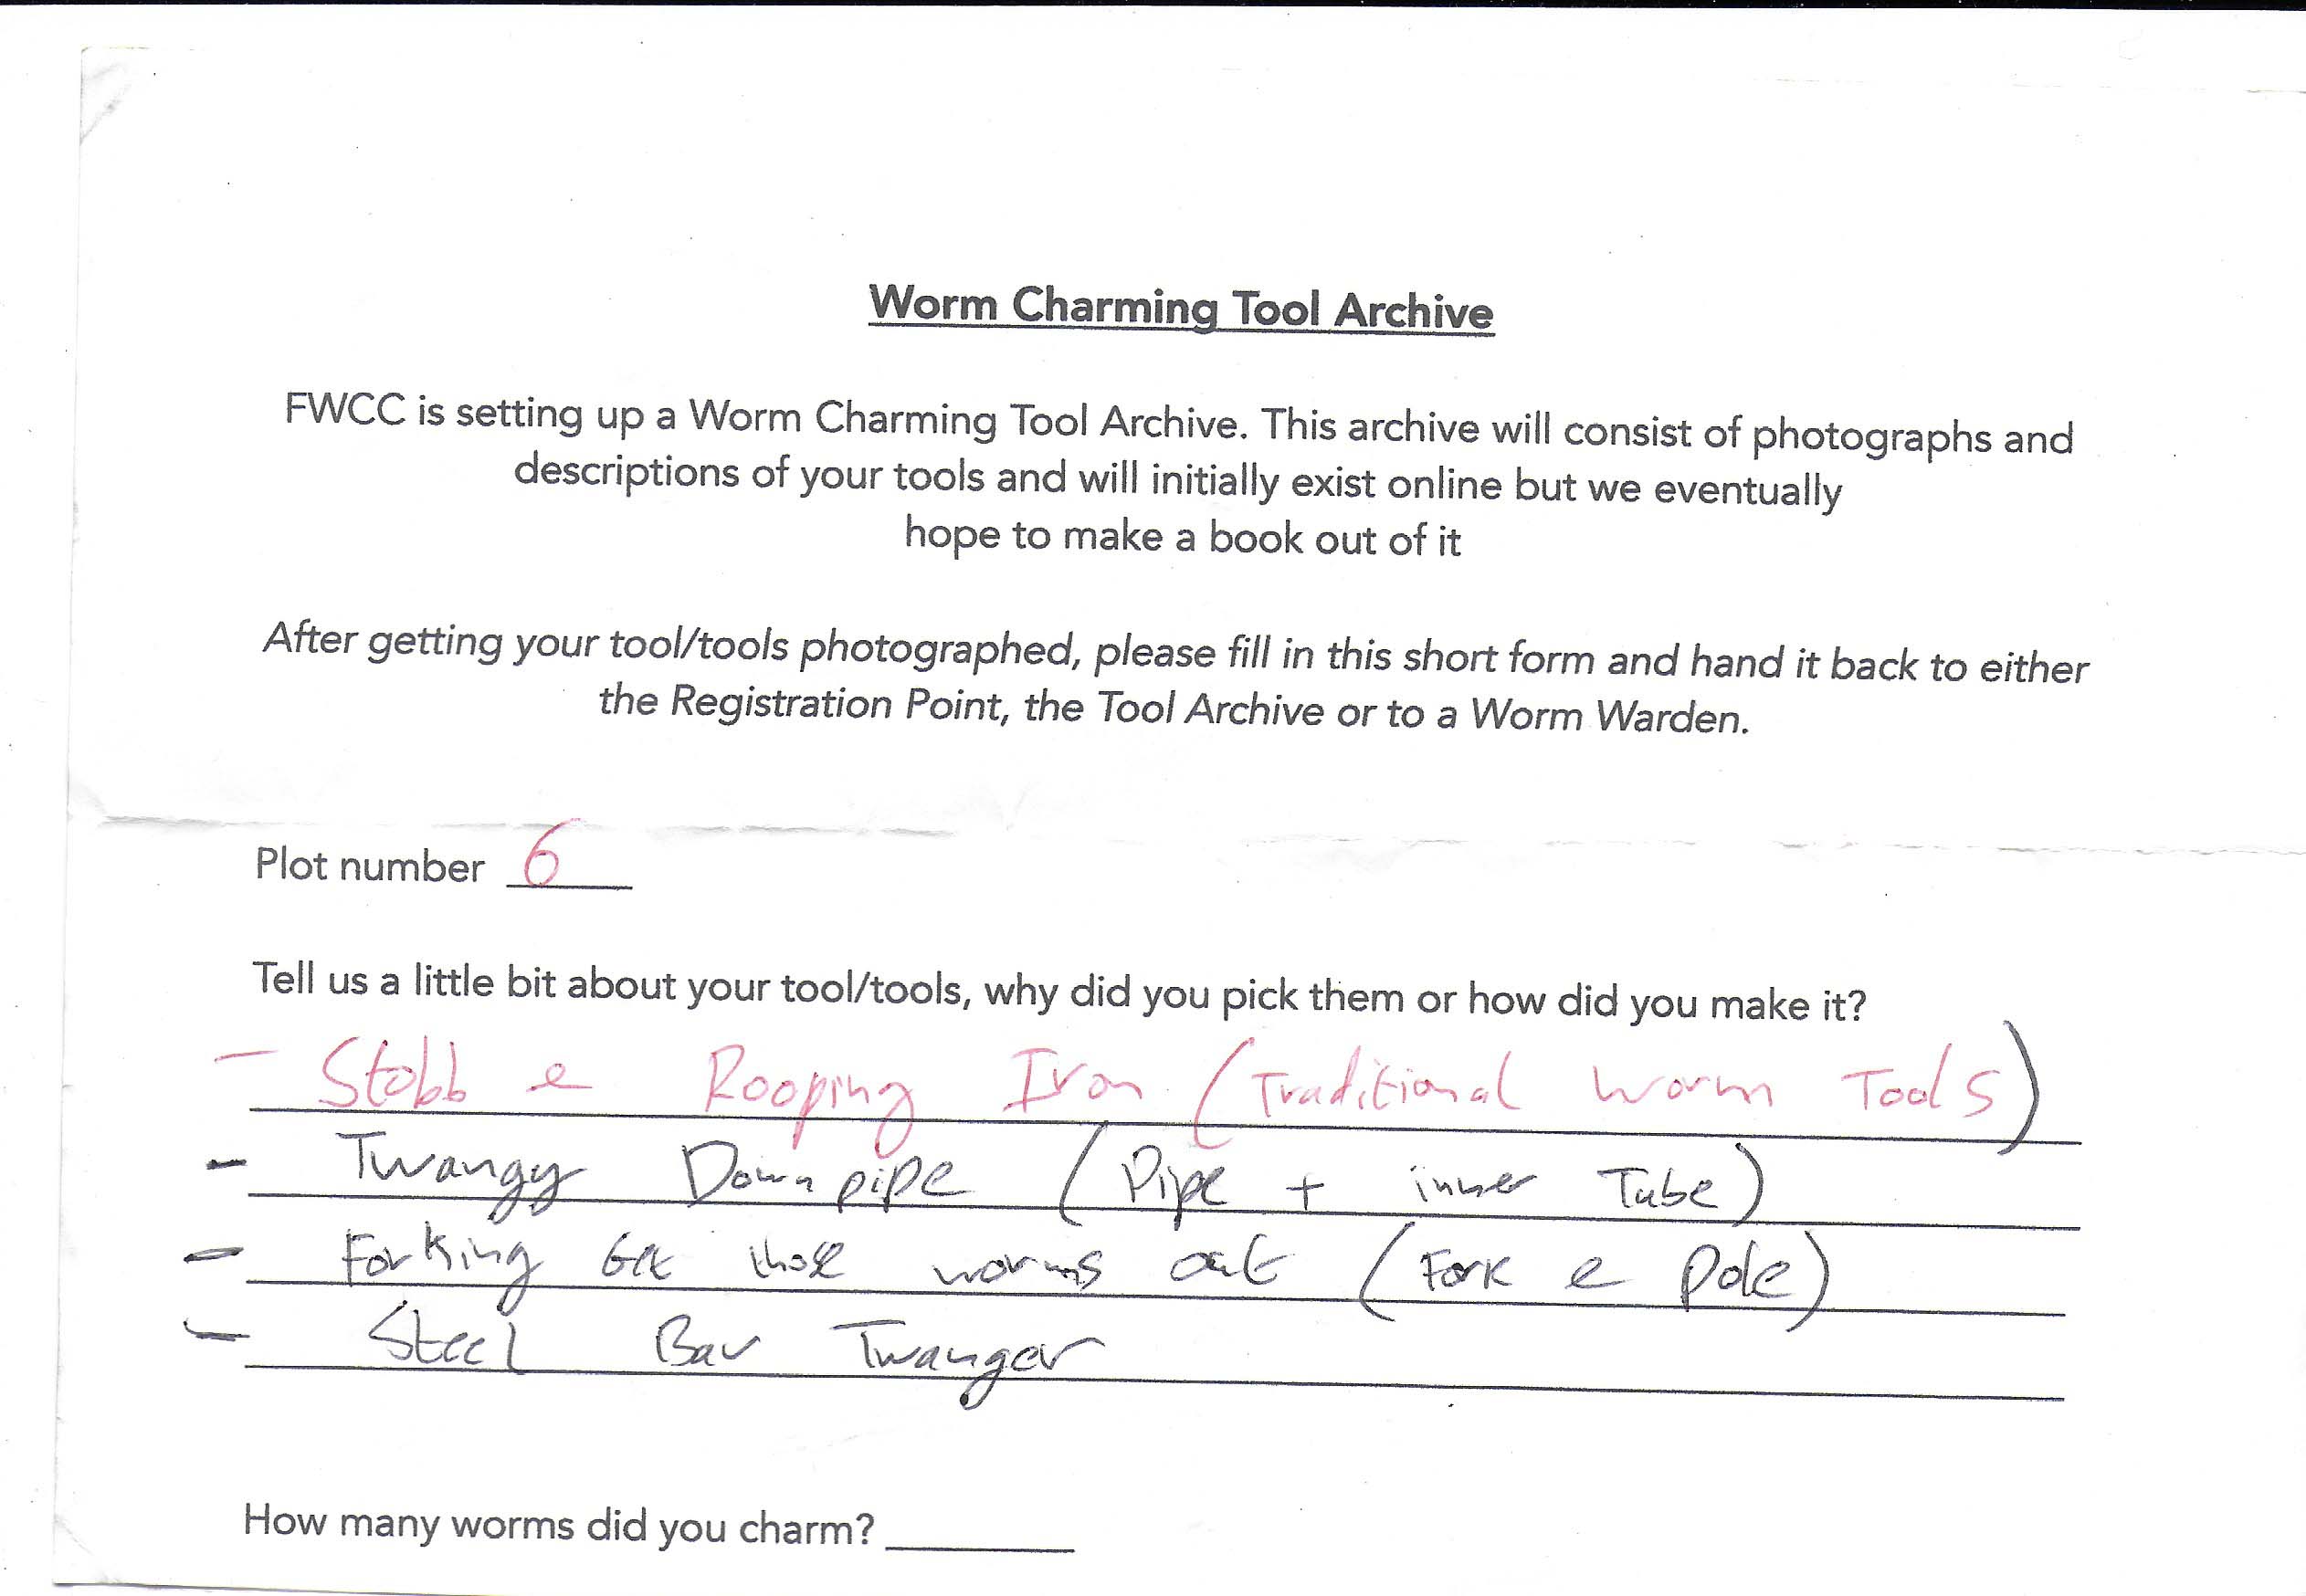 Worm Charming Tool Archive
FWCC is setting up a Worm Charming Tool Archive. This archive will consist of photographs and
descriptions of your tools and will initially exist online but we eventually
hope to make a book out of it
After getting your tool/tools photographed, please fill in this short form and hand it back to either
the Registration Point, the Tool Archive or to a Worm Warden.
Plot number 6
Tell us a little bit about your tool/tools, why did you pick them or how did you make it?
- Stobb e Rooping Iron (Traditional worm Tools)
- Twangy Downpipe (Pipe + inner Tube)
- Forking Get those worms out (Fork e Pole)
- Steel Bar Twanger
How many worms did you charm?